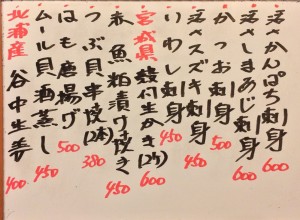 活さかんぱち刺身 600
活さしまあじ刺身 600
かつお刺身 500
活さスズキ刺身 450
いわし刺身 450
宮城県 殻付生かき(2ケ) 600
赤魚粕漬け焼き 450
つぶ貝串焼(2本) 380
はも唐揚げ 500
ムール貝酒蒸し 450
北浦産 谷中生姜 400